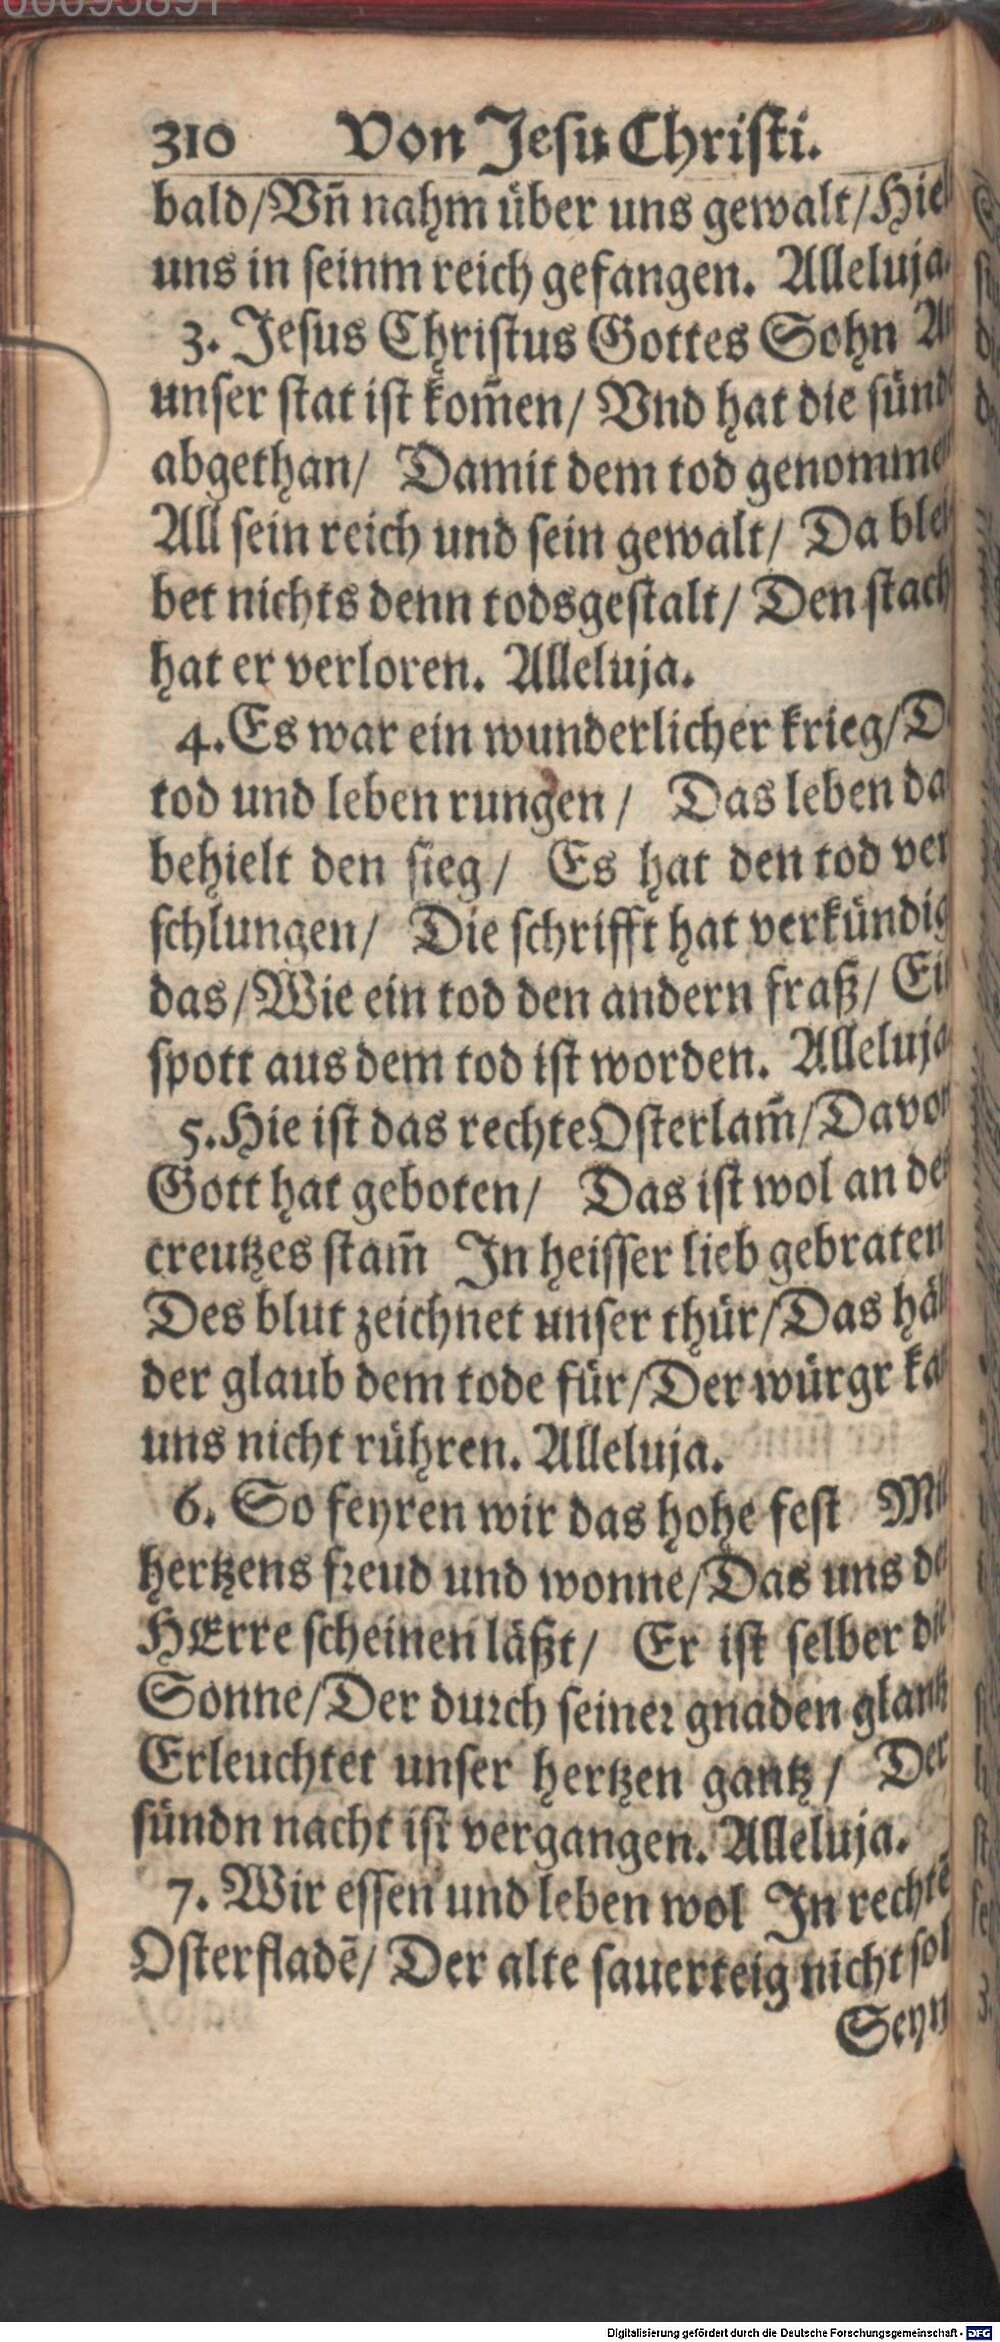 00095891
310 Von Jesu Christi.
bald/Vñ nahm über uns gewalt/Hiel
uns in seinm reich gefangen. Alleluja.
3. Jesus Christus Gottes Sohn An
unser stat ist kom̃en/ Vnd hat die sünd
abgethan/ Damit dem tod genomme
All sein reich und sein gewalt/ Da blei
bet nichts denn todsgestalt/ Den stach
hat er verloren. Alleluja.
4. Es war ein wunderlicher krieg/D
tod und leben rungen/ Das leben da
behielt den sieg/ Es hat den tod ver
schlungen/ Die schrifft hat verkündig
das/Wie ein tod den andern fraß/ Ein
spott aus dem tod ist worden. Alleluja
5. Hie ist das rechte Osterlam̃/Davon
Gott hat geboten/ Das ist wol an de
creutzes stam̃ In heisser lieb gebraten
Des blut zeichnet unser thür/Das häl
der glaub dem tode für/Der würgr ka
uns nicht rühren. Alleluja.
6. So feyren wir das hohe fest Mit
hertzens freud und wonne/Das uns de
HErre scheinen läßt/ Er ist selber die
Sonne/Der durch seiner gnaden glantz
Erleuchtet unser hertzen gantz/ Der
sündn nacht ist vergangen. Alleluja.
7. Wir essen und leben wol In rechtẽ
Osterfladẽ/ Der alte sauerteig nicht sol
Seyn
Digitalisierung gefördert durch die Deutsche Forschungsgemeinschaft - DFG